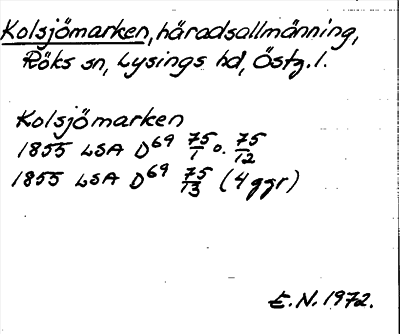 Kolsjömarken, häradsallmänning,
Röks sn, Lysings hd, Östg. l.
Kolsjömarken
1855 LSA D⁶⁹ 75/1 o. 75/12
1855 LSA D⁶⁹ 75/13 (4 ggr)
E.N. 1972.